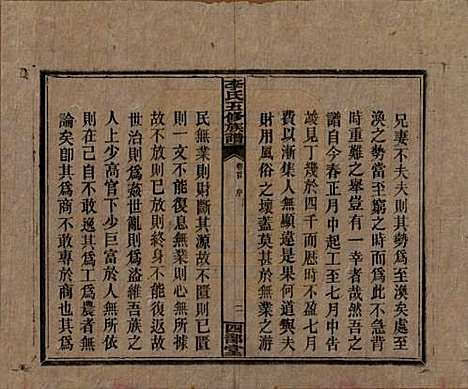 兄妻不夫夫則其勢爲至渙矣處至
渙之勢當至窮之時而不急背
時重難之舉豈有一幸者哉然吾之
譜自今春正月中起工至七月中告
竣見丁幾於四千而時不盈七月
費以漸集人無顯違是果何道與夫
財用風俗之壞蓋莫甚於無業之游
李氏五修族譜
卷首 序
二
四部堂
民無業則財斷其源故不匱則已匱
則一文不能復無業則心無所繫
故不放則已放則終身不能復返故
世治則爲姦世亂則爲盜維吾族之
人上少高官下少巨富於人無所依
則在己自不敢逸其爲工爲農者無
論矣卽其爲商不敢專於商也其爲